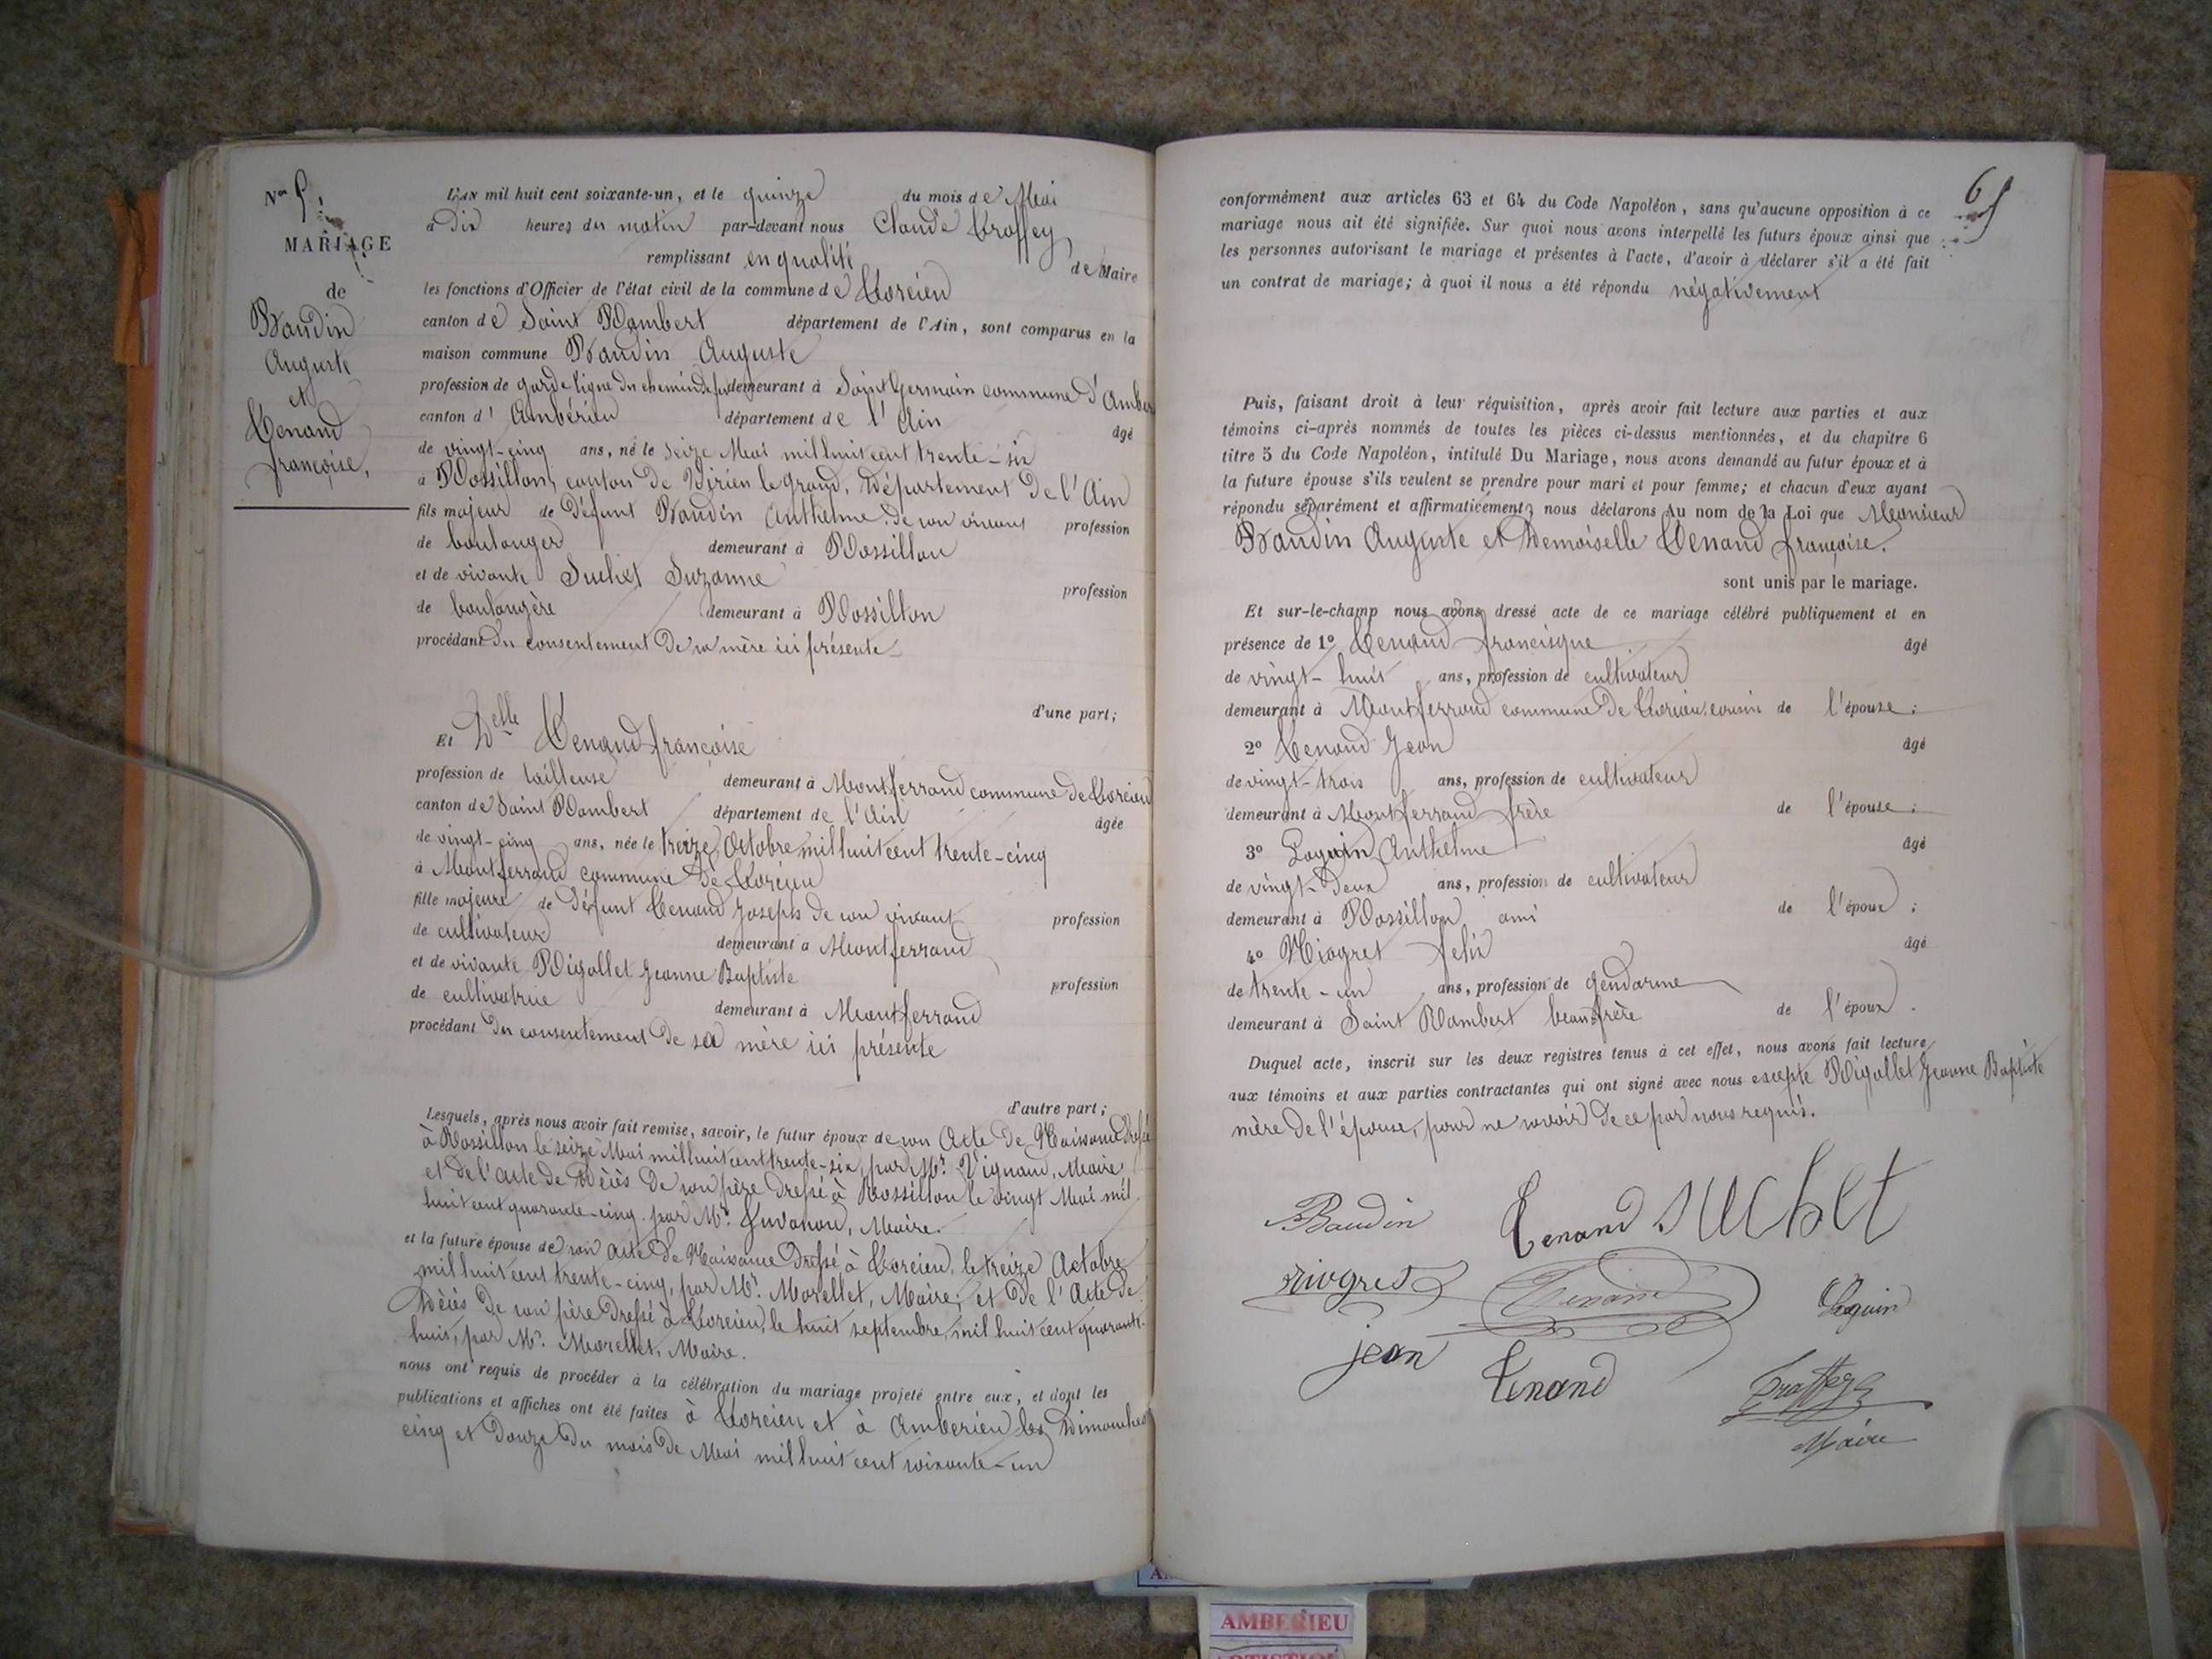 Nos 5
MARIAGE
de
Baudin
Auguste
et
Tenand
françoise,
L'AN mil huit cent soixante-un, et le quinze du mois de Mai
à dix heures du matin par-devant nous Claude Troffey
remplissant en qualité de Maire
les fonctions d'Officier de l'état civil de la commune de Torcieu
canton de Saint Rambert département de l'Ain, sont comparus en la
maison commune Baudin Auguste
profession de garde ligne du chemin de fer demeurant à Saint Germain commune d'Amber
canton d'Ambérieu département de l'Ain âgé
de vingt-cinq ans, né le seize Mai mil huit cent trente-six
à Rossillon, canton de Virieu le grand, Département de l'Ain
fils majeur de Défunt Baudin Anthelme de son vivant profession
de boulanger demeurant à Rossillon
et de vivante Suchet Suzanne profession
de boulangère demeurant à Rossillon
procédant du consentement de sa mère ici présente
d'une part;
Et Delle Tenand françoise
profession de tailleuse demeurant à Montferrand commune de Torcieu
canton de Saint Rambert département de l'Ain âgée
de vingt-cinq ans, née le treize Octobre mil huit cent trente-cinq
à Montferrand commune de Torcieu
fille majeure de défunt Tenand Joseph de son vivant profession
de cultivateur demeurant à Montferrand
et de vivante Rigollet Jeanne Baptiste profession
de cultivatrice demeurant à Montferrand
procédant du consentement de sa mère ici présente
d'autre part;
Lesquels, après nous avoir fait remise, savoir, le futur époux de son Acte de Naissance dressé
à Rossillon le seize Mai mil huit cent trente-six, par Mr. Vignand, Maire,
et de l'acte de Décès de son père dressé à Rossillon le vingt Mai mil
huit cent quarante-cinq par Mr. Maire.
et la future épouse de son acte de Naissance dressé à Torcieu, le treize Octobre
mil huit cent trente-cinq, par Mr. Morellet, Maire; et de l'Acte de
Décès de son père dressé à Torcieu, le huit septembre, mil huit cent quarante-
huit, par Mr. Morellet, Maire.
nous ont requis de procéder à la célébration du mariage projeté entre eux, et dont les
publications et affiches ont été faites à Torcieu et à Amberieu les Dimanches
cinq et douze du mois de Mai mil huit cent soixante-un
6
conformément aux articles 63 et 64 du Code Napoléon, sans qu'aucune opposition à ce
mariage nous ait été signifiée. Sur quoi nous avons interpellé les futurs époux ainsi que
les personnes autorisant le mariage et présentes à l'acte, d'avoir à déclarer s'il a été fait
un contrat de mariage; à quoi il nous a été répondu négativement
Puis, faisant droit à leur réquisition, après avoir fait lecture aux parties et aux
témoins ci-après nommés de toutes les pièces ci-dessus mentionnées, et du chapitre 6
titre 5 du Code Napoléon, intitulé Du Mariage, nous avons demandé au futur époux et à
la future épouse s'ils veulent se prendre pour mari et pour femme; et chacun d'eux ayant
répondu séparément et affirmativement, nous déclarons Au nom de la Loi que Monsieur
Baudin Auguste et Demoiselle Tenand françoise.
sont unis par le mariage.
Et sur-le-champ nous avons dressé acte de ce mariage célébré publiquement et en
présence de 1° Tenand francisque âgé
de vingt-huit ans, profession de cultivateur
demeurant à Montferrand commune de Torcieu, cousin de l'épouse;
2° Tenand Jean âgé
de vingt-trois ans, profession de cultivateur
demeurant à Montferrand frère de l'épouse;
3° Anthelme âgé
de vingt-deux ans, profession de cultivateur
demeurant à Rossillon ami de l'époux;
4° Niogret felix âgé
de trente-un ans, profession de gendarme
demeurant à Saint Rambert beau frère de l'époux.
Duquel acte, inscrit sur les deux registres tenus à cet effet, nous avons fait lecture
aux témoins et aux parties contractantes qui ont signé avec nous excepté Rigollet Jeanne Baptiste
mère de l'épouse, pour ne savoir de ce par nous requis.
Baudin Tenand Suchet
niogret Tenand
jean Tenand Troffey
Maire
AMBERIEU